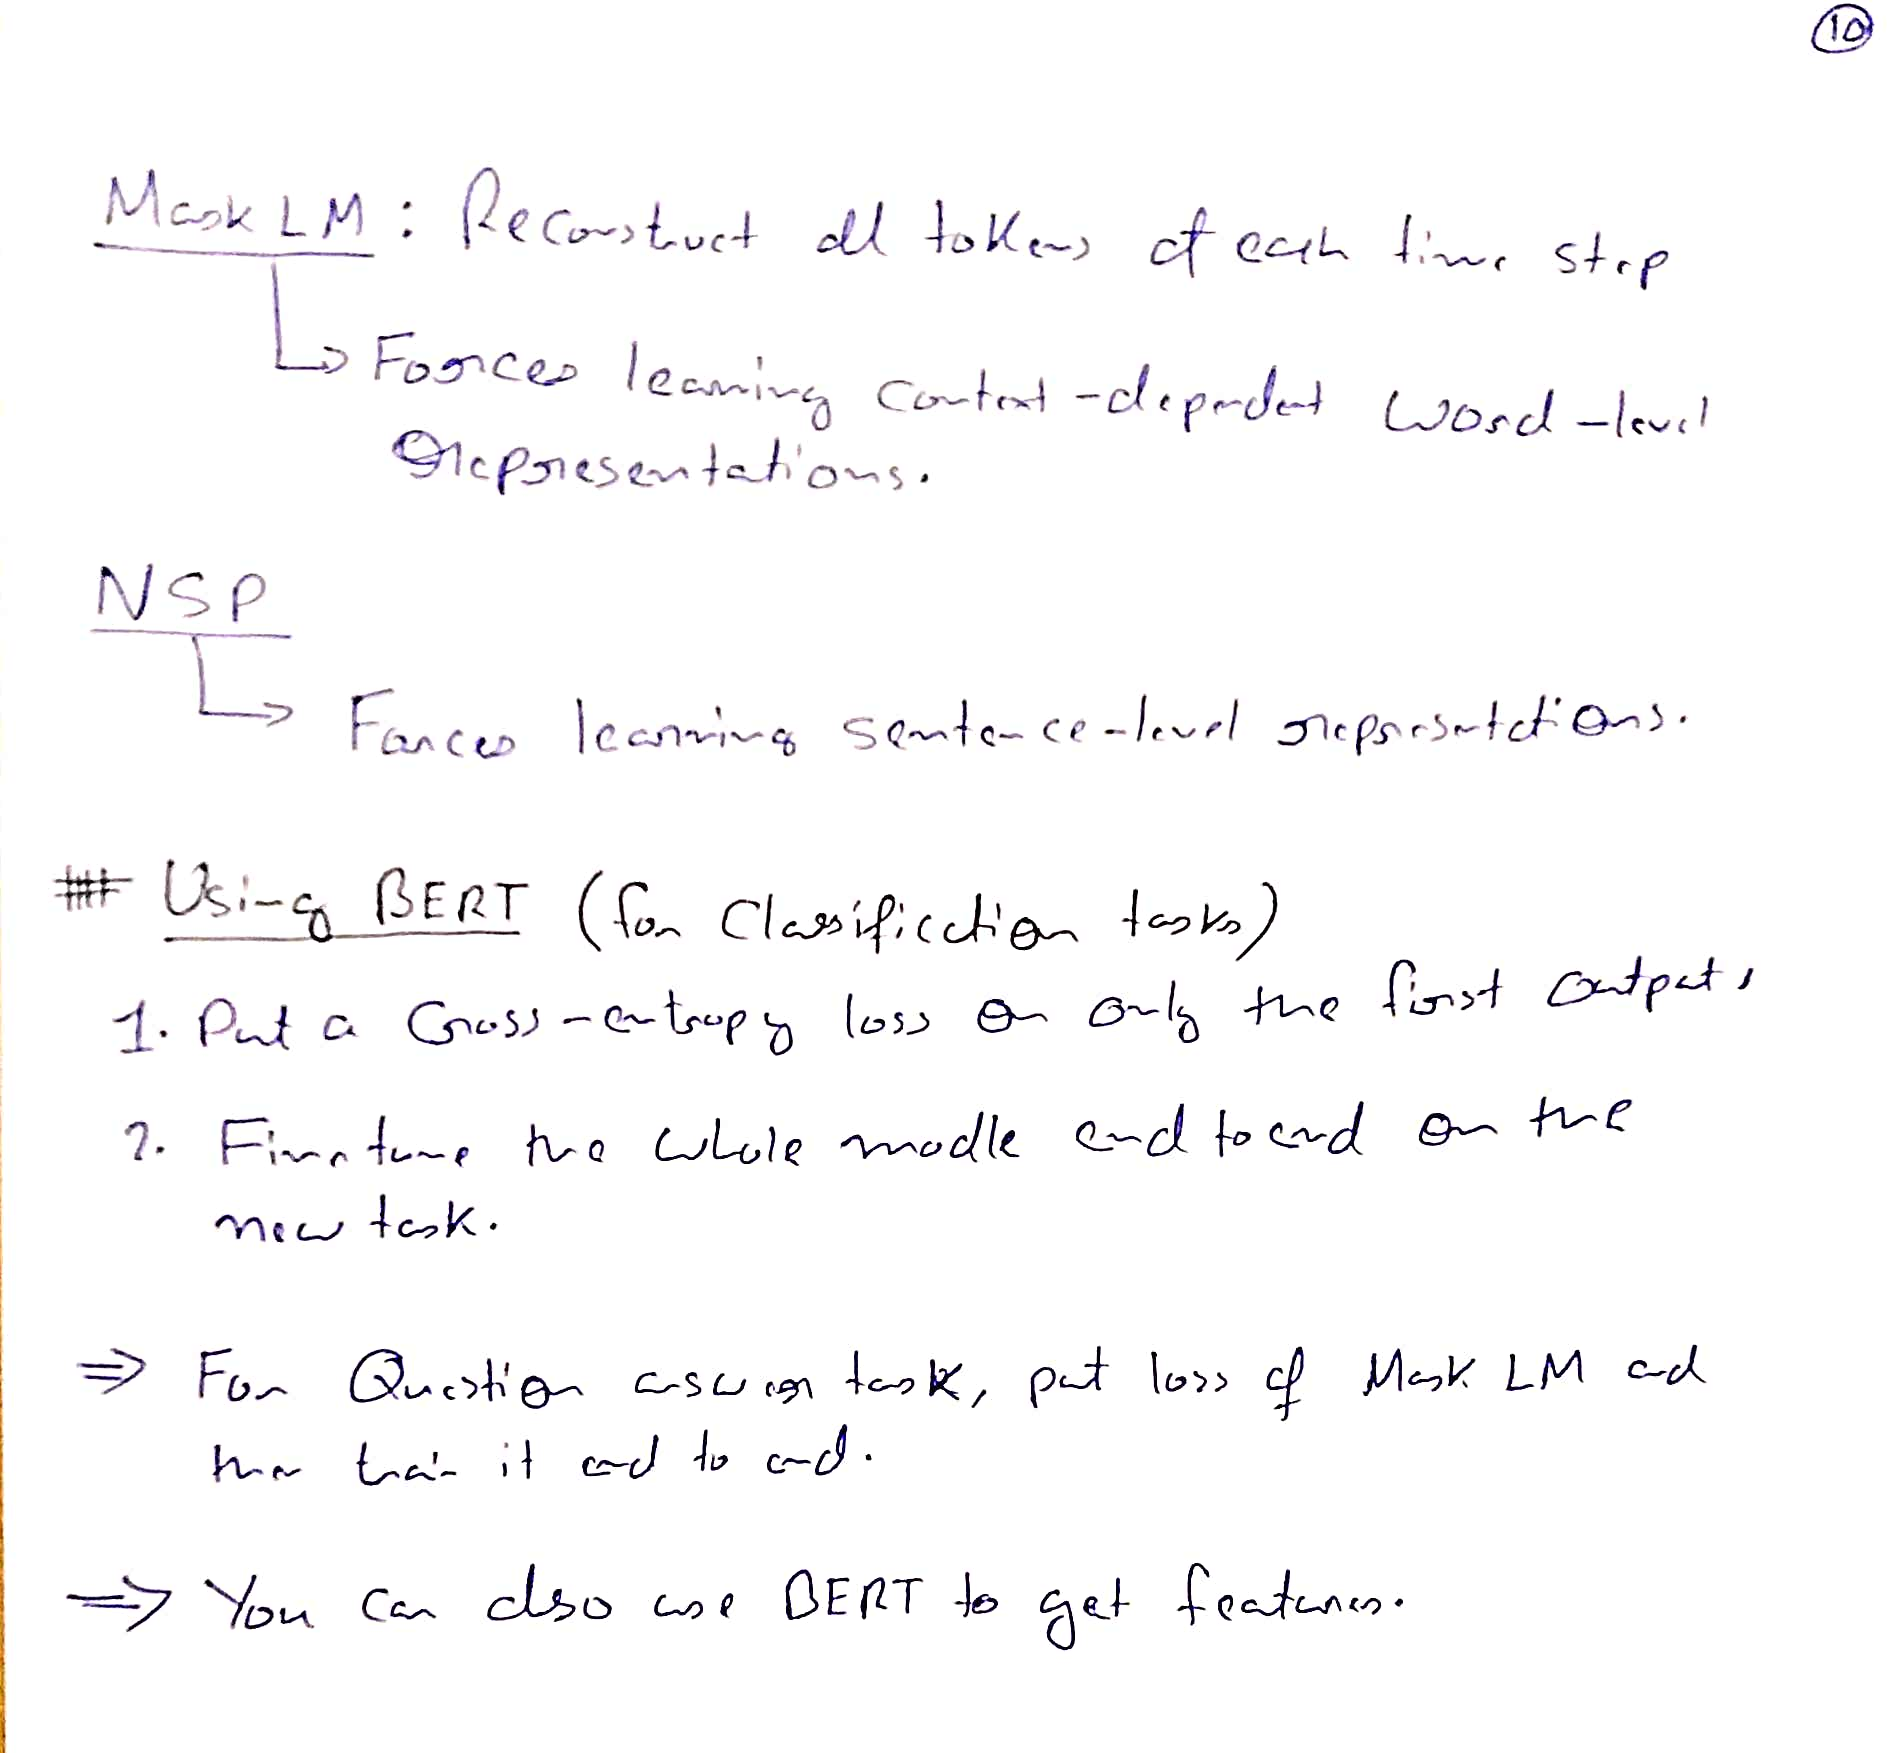 10
Mask LM : Reconstruct all tokens at each time step
Forces learning context-dependent word-level
representations.
NSP
Forces learning sentence-level representations.
## Using BERT (for Classification tasks)
1. Put a Cross-entropy loss on only the first output,
2. Fine tune the whole modle end to end on the
new task.
⇒ For Question answer task, put loss of Mask LM and
then train it end to end.
⇒ You can also use BERT to get features.